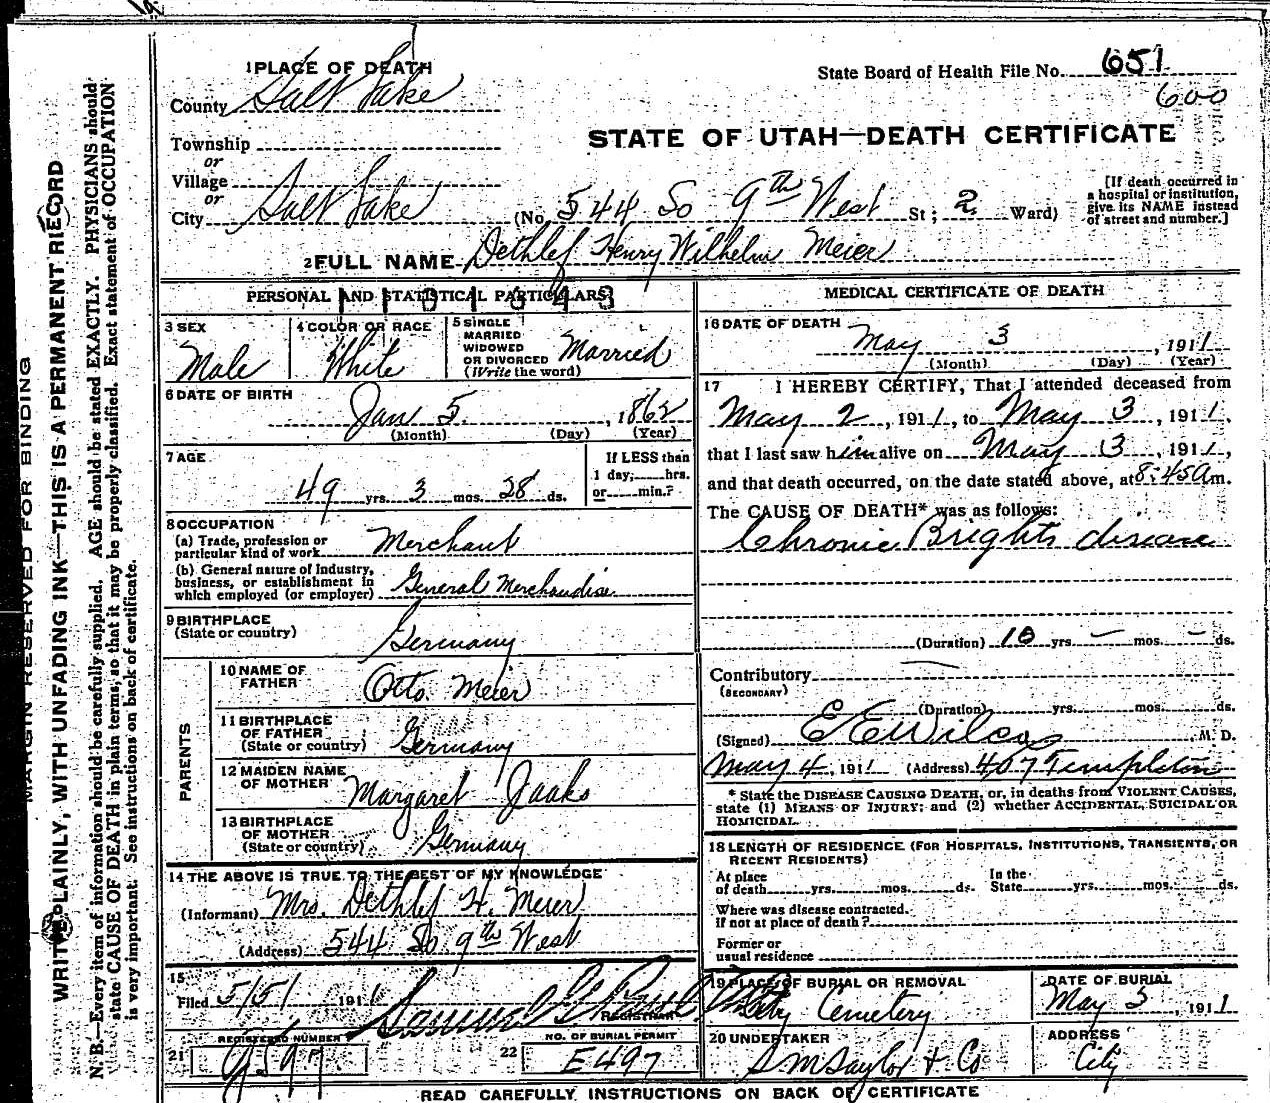 1 PLACE OF DEATH
State Board of Health File No. 651
600
County Salt Lake
STATE OF UTAH—DEATH CERTIFICATE
Township
or
Village
or
City Salt Lake (No. 544 So 9th West St; 2 Ward)
[If death occurred in
a hospital or institution,
give its NAME instead
of street and number.]
2 FULL NAME Dethlef Henry Wilhelm Meier
PERSONAL AND STATISTICAL PARTICULARS
3 SEX
Male
4 COLOR OR RACE
White
5 SINGLE
MARRIED
WIDOWED
OR DIVORCED
(Write the word)
Married
6 DATE OF BIRTH
Jan 5, 1862
(Month) (Day) (Year)
7 AGE
49 yrs. 3 mos. 28 ds.
If LESS than
1 day, hrs.
or min.?
8 OCCUPATION
(a) Trade, profession or
particular kind of work Merchant
(b) General nature of Industry,
business, or establishment in
which employed (or employer) General Merchandise
9 BIRTHPLACE
(State or country) Germany
PARENTS
10 NAME OF
FATHER Otto Meier
11 BIRTHPLACE
OF FATHER
(State or country) Germany
12 MAIDEN NAME
OF MOTHER Margaret Jaaks
13 BIRTHPLACE
OF MOTHER
(State or country) Germany
14 THE ABOVE IS TRUE TO THE BEST OF MY KNOWLEDGE
(Informant) Mrs. Dethlef H. Meier
(Address) 544 So 9th West
15
Filed 5/5/ 1911
REGISTRAR
REGISTERED NUMBER
21
NO. OF BURIAL PERMIT
22 E497
MEDICAL CERTIFICATE OF DEATH
16 DATE OF DEATH
May 3, 1911
(Month) (Day) (Year)
17 I HEREBY CERTIFY, That I attended deceased from
May 2, 1911, to May 3, 1911,
that I last saw him alive on May 3, 1911,
and that death occurred, on the date stated above, at 8:45 a m.
The CAUSE OF DEATH* was as follows:
Chronic Brights disease
(Duration) 10 yrs. — mos. — ds.
Contributory —
(SECONDARY)
(Duration) yrs. mos. ds.
(Signed) E E Wilcox M. D.
May 4, 1911 (Address) 407 Templeton
* State the DISEASE CAUSING DEATH, or, in deaths from VIOLENT CAUSES,
state (1) MEANS OF INJURY; and (2) whether ACCIDENTAL, SUICIDAL OR
HOMICIDAL.
18 LENGTH OF RESIDENCE (FOR HOSPITALS, INSTITUTIONS, TRANSIENTS, OR
RECENT RESIDENTS)
At place
of death yrs. mos. ds.
In the
State yrs. mos. ds.
Where was disease contracted.
If not at place of death?
Former or
usual residence
19 PLACE OF BURIAL OR REMOVAL
City Cemetery
DATE OF BURIAL
May 5, 1911
20 UNDERTAKER
S M Taylor & Co
ADDRESS
City
READ CAREFULLY INSTRUCTIONS ON BACK OF CERTIFICATE
MARGIN RESERVED FOR BINDING
WRITE PLAINLY, WITH UNFADING INK—THIS IS A PERMANENT RECORD
N. B.—Every item of information should be carefully supplied. AGE should be stated EXACTLY. PHYSICIANS should
state CAUSE OF DEATH in plain terms, so that it may be properly classified. Exact statement of OCCUPATION
is very important. See instructions on back of certificate.